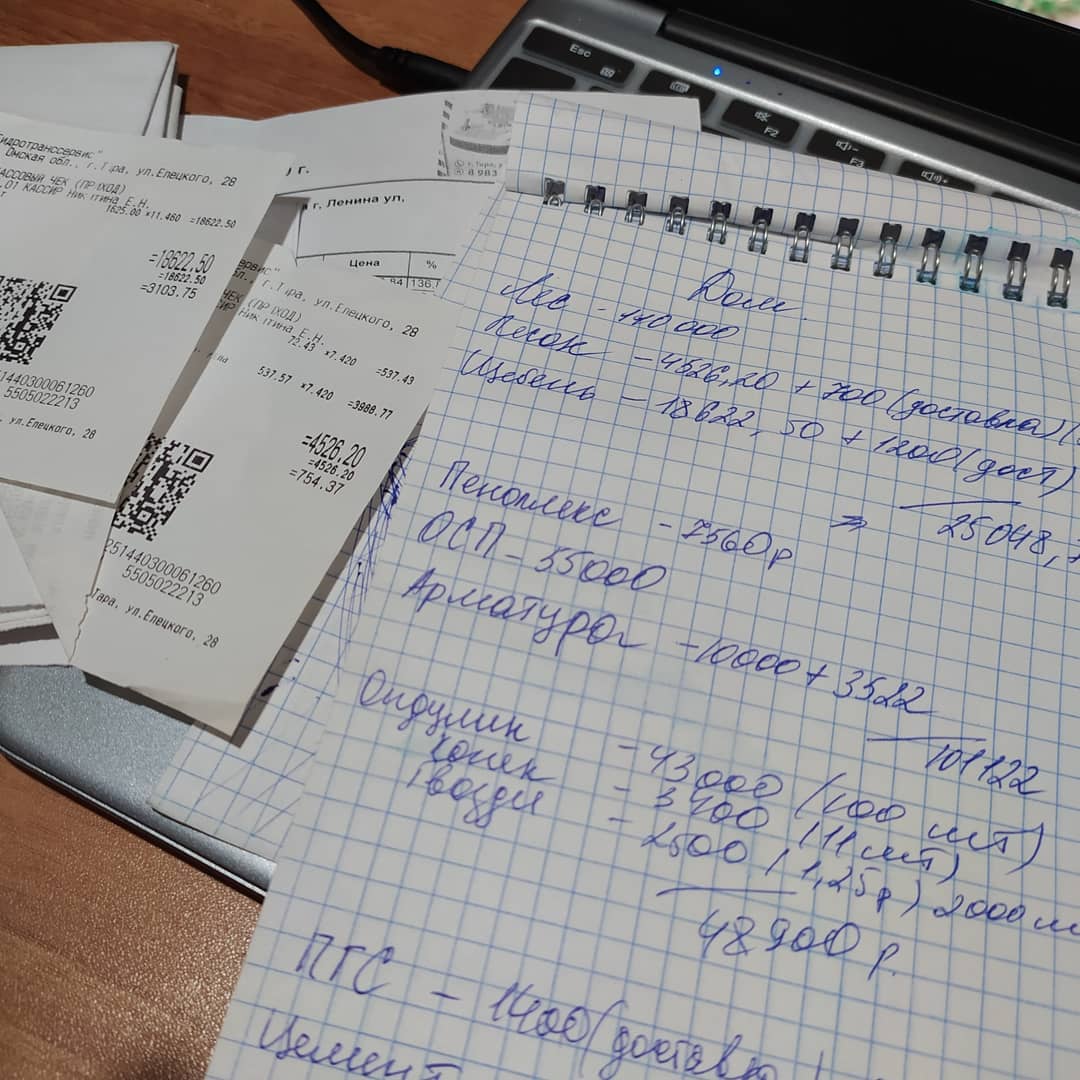 Esc
F2
F3
Гидротранссервис"
Омская обл., г.Тара, ул.Елецкого, 28
КАССОВЫЙ ЧЕК (ПРИХОД)
.01 КАССИР Никитина Е.Н.
1625.00 *11.460 =18622.50
=18622.50
=18622.50
=3103.75
51440300061260
5505022213
ул.Елецкого, 28
) г.
г. Ленина ул,
Цена %
84 136,
г.Тара, у
8 983
ервис"
г.Тара, ул.Елецкого, 28
ЧЕК (ПРИХОД)
ИР Никитина Е.Н.
72.43 *7.420 =537.43
537.57 *7.420 =3988.77
=4526.20
=4526.20
=754.37
251440300061260
5505022213
Тара, ул.Елецкого, 28
Дом.
Лес - 440 000
Песок - 4526,20 + 700 (доставка) (
Щебень - 18622,50 + 1200 (дост)
25048,7
Пеноплекс - 7560р
ОСП - 55000
Арматура - 10000 + 3522
101122
Ондулин - 43 000 (100 шт)
Конек - 3400 (11 шт)
Гвозди - 2500 (1,25р) 2000 ш
48900 р.
ПГС - 1400 (доставка
Цемент